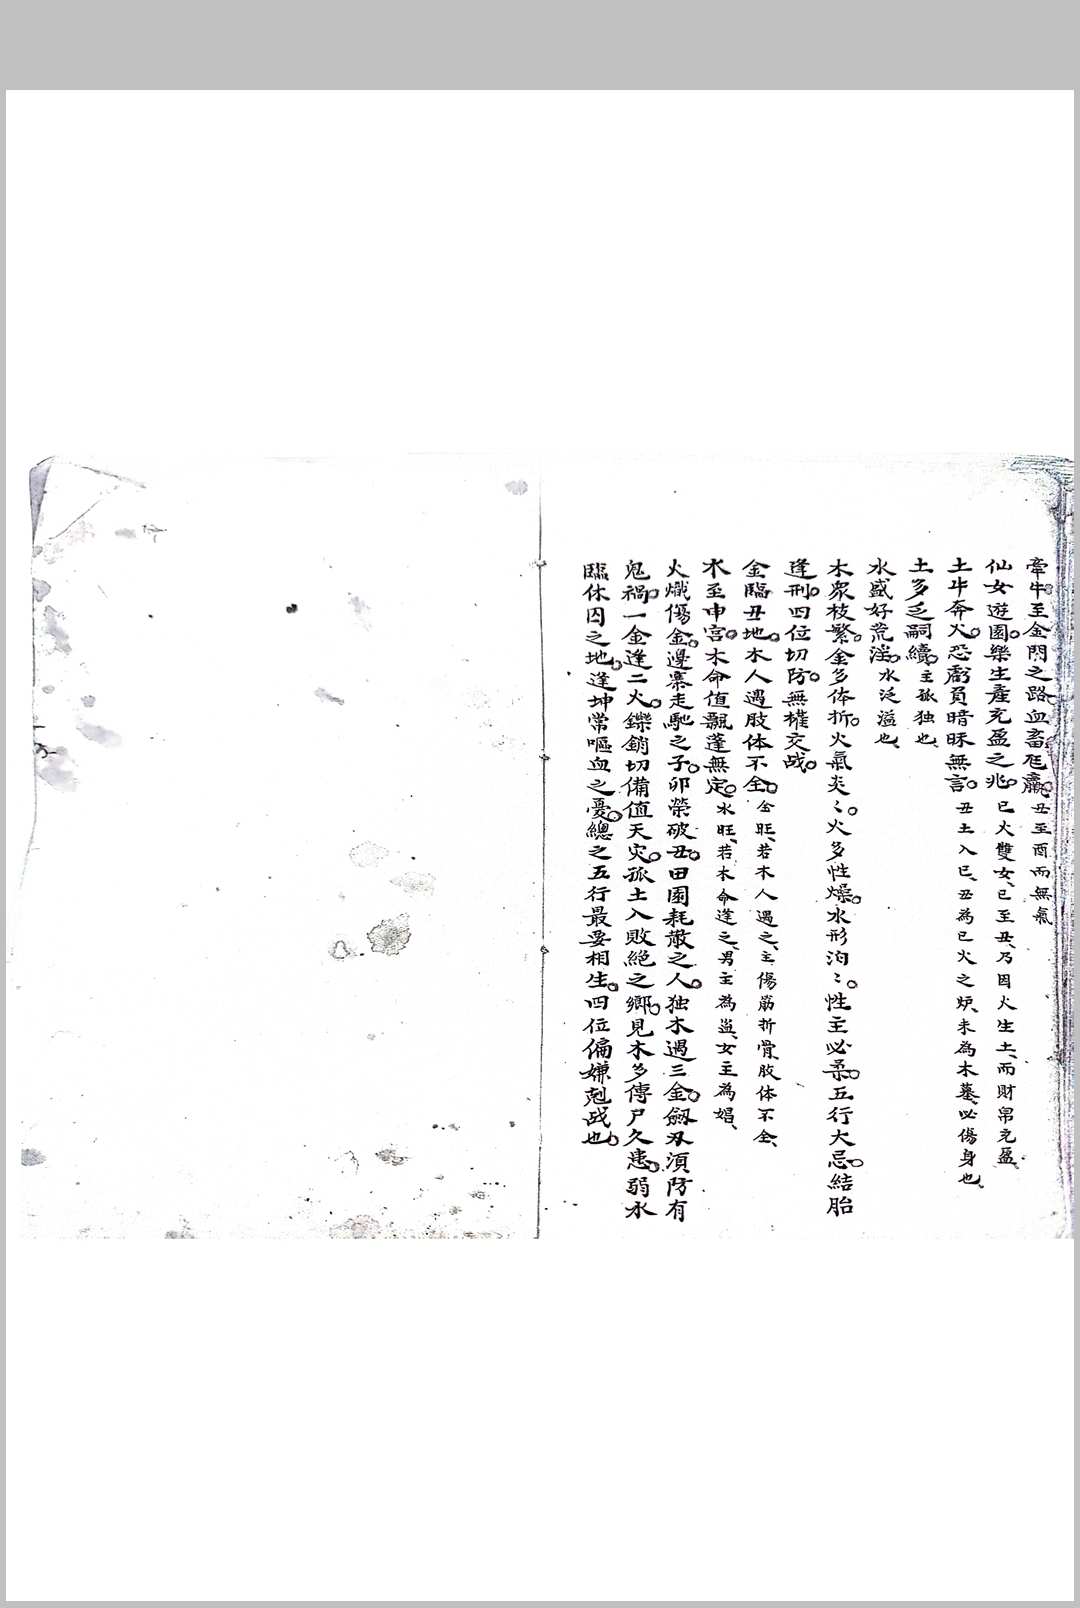 牽牛。至金閇之路血畜尫羸。丑至酉而無氣
仙女遊園。樂生產充盈之兆。巳火雙女、巳至丑、乃因火生土、而財帛充盈、
土牛奔火。恐虧負暗昧無言。丑土入巳、丑為巳火之炉、未為木墓、必傷身也、
土多乏嗣續。主孤独也、
水盛好荒淫。水泛溢也、
木衆枝繁。金多体折。火氣炎〻。火多性燥。水形泊〻。性主必柔。五行大忌。結胎
逢刑。四位切防。無權交战。
金臨丑地。木人遇肢体不全。金旺、若木人遇之、主傷筋折骨、肢体不全、
木至申宮。木命值飄蓬無定。水旺、若木命逢之、男主為盜、女主為娼、
火熾傷金。邊寨走馳之子。卯榮破丑。田園耗散之人。独木遇三金。劔刄湏防有
鬼禍。一金逢二火。鑠銷切備值天灾。孤土入敗絕之鄉。見木多傳尸久患。弱水
臨休囚之地。逢坤常嘔血之憂。總之五行最要相生。四位偏嫌剋战也。